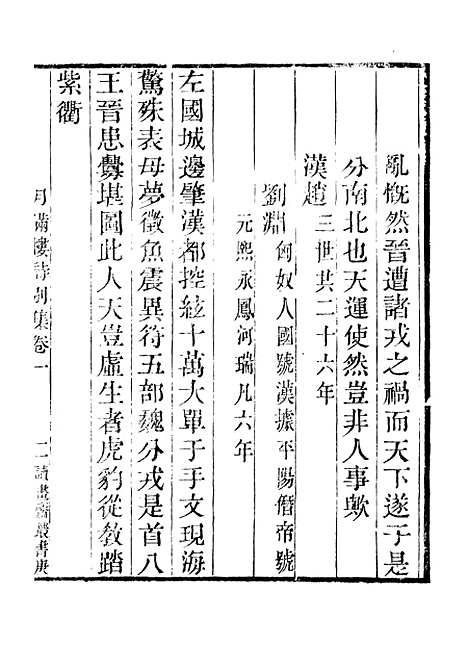 亂慨然晉遭諸戎之禍而天下遂于是
分南北也天運使然豈非人事歟
漢趙三世共二十六年
劉淵匈奴人國號漢據平陽僭帝號
元熙永鳳河瑞凡六年
左國城邊肇漢都控絃十萬大單于手文現海
驚殊表母夢徵魚震異符五部魏分戎是首八
王晉患釁堪圖此人天豈虛生者虎豹從敎踏
紫衢
月滿樓詩別集卷一
二
讀畫齋叢書庚